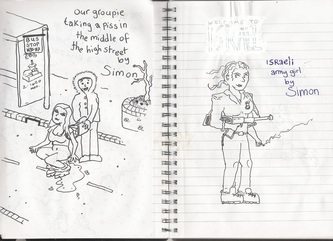 our groupie
taking a piss in
the middle of
the high street
by
Simon
BUS
STOP
WELCOME TO
ISRAEL
ISRAELI
army girl
by
Simon